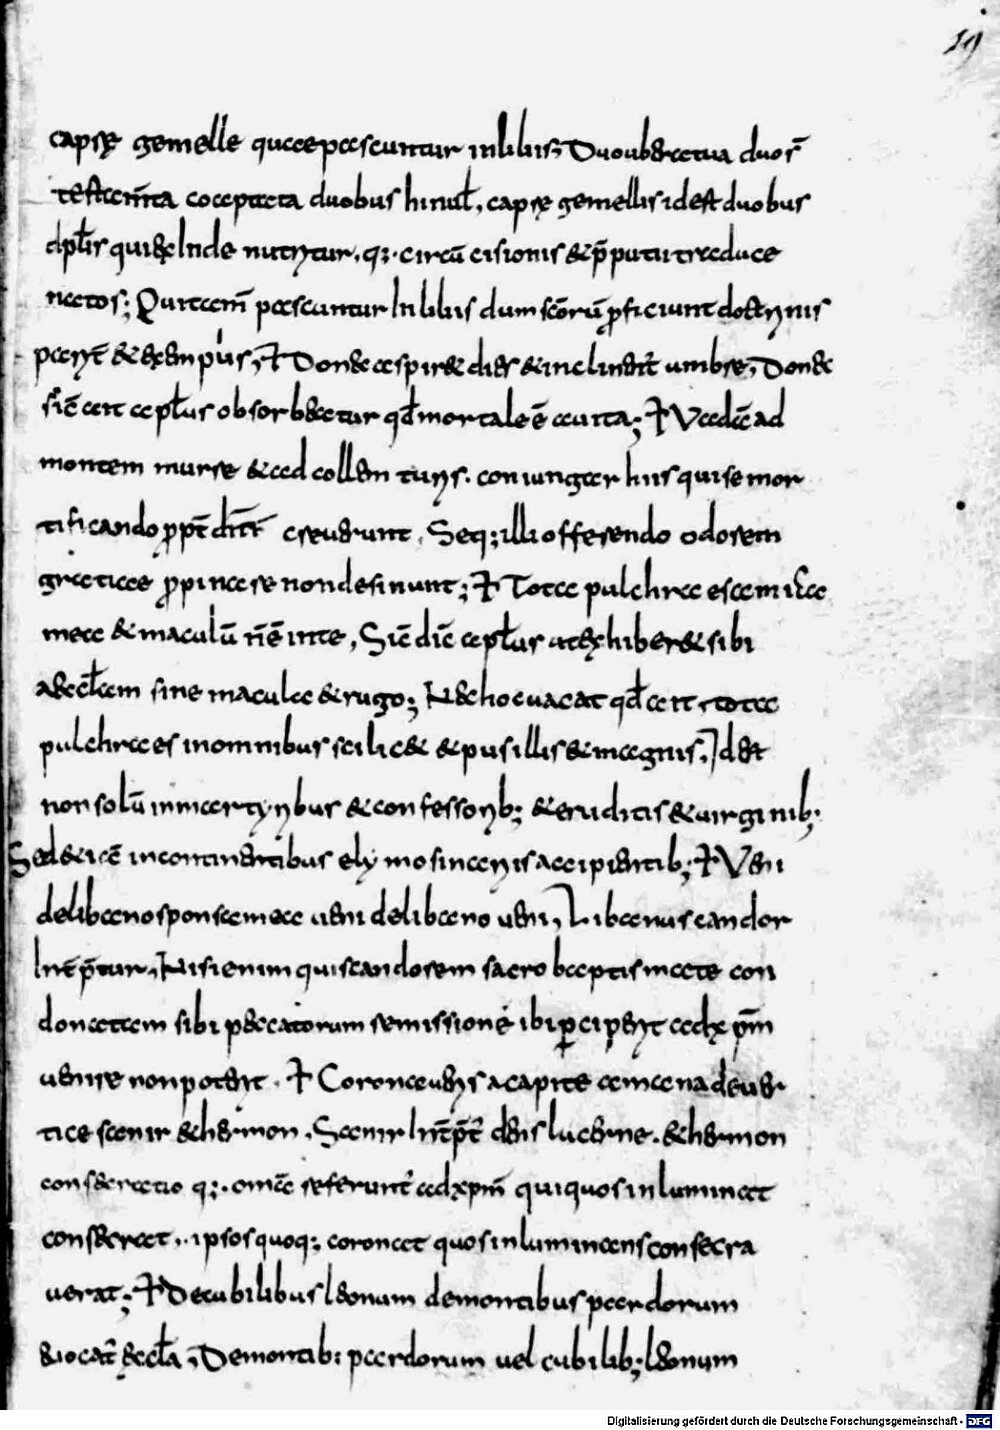 19
capsę gemelle quae pascuntur inliliis; Duo ubera tua duor̄
testam̄ta coaptata duobus hinul̄, capsę gemellis idest duobus
dpl̄is qui exInde nutriuntur, q;· circū cisionis & p̄putii traduce
natos; Qui tam̄ pascuntur In liliis dum sc̄orū proficiunt doctrinis
parit̄ & exemplis, Donec aspiret dies & inclinent̄ umbrę, Donec
sic̄ ait apl̄us obsorbeatur qđ mortale ē a uita; Vadā ad
montem murre & ad collem turis. coniungar hiis qui se mor
tificando propt̄ crediderunt, Seq; illi offerendo odorem
gratiae propinare non desinunt; Tota pulchra es amica
mea & maculū n̄ ē in te, Sic̄ dic̄ apl̄us ut exhiberet sibi
aeccl̄am sine macula & ruga; Nec hoc uacat qđ ait, tota
pulchra es in omnibus scilic& & pusillis & magnis, Idest
non solū in martyribus & confessorib; & eruditis & uirginib;
Sed & iā incontinentibus elymosinariis accipientib; Veni
de libano sponsa mea ueni de libano ueni, Libanus candor
Int̄p̄tatur, Nisi enim quis candorem sacro baptismate con
donatam sibi peccatorum remissionē ibi perceperit ad xp̄m
uenire non poterit. Coronaueris a capite amana de uer
tice sanir & hermon, Sanir Int̄p̄t̄ dens lucerne. & hermon
consecratio q;· omīa referunt̄ ad xp̄m qui quos inluminat
consecrat, ipsos quoq; coronat quos inluminans consecra
uerat; De cubilibus leonum de montibus pardorum
& uocat̄ eccl̄a, De montib; pardorum uel cubilib; leonum
Digitalisierung gefördert durch die Deutsche Forschungsgemeinschaft - DFG